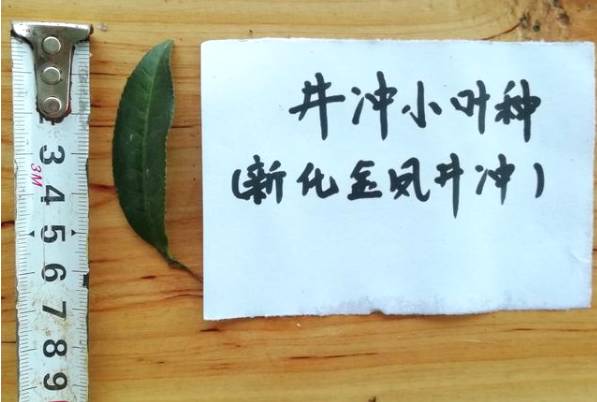 井冲小叶种
(新化金凤井冲)
3M
3
4
5
6
7
8
9